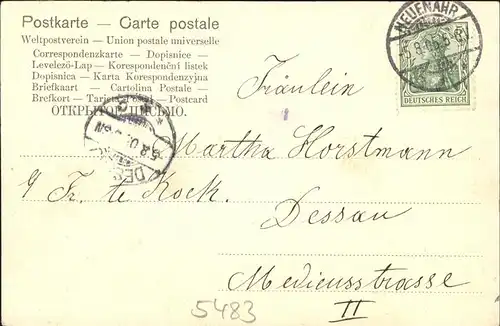 Postkarte — Carte postale
Weltpostverein — Union postale universelle
Correspondenzkarte — Dopisnice —
Levelező-Lap — Korespondenční listek
Dopisnica — Karta Korespondenzyjna
Briefkaart — Cartolina Postale —
Brefkort — Tarjeta postal — Postcard
ОТКРЫТОЕ ПИСЬМО.
NEUENAHR
DEUTSCHES REICH
Fräulein
Martha Horstmann
DES
p/ Fr. te Kock.
Dessau
Medicusstrasse
II
5483